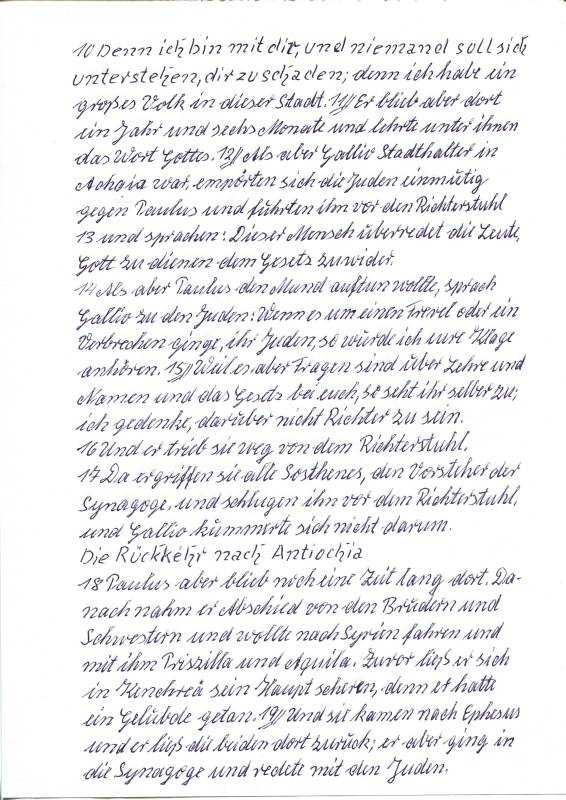 10 Denn ich bin mit dir, und niemand soll sich
unterstehen, dir zu schaden; denn ich habe ein
großes Volk in dieser Stadt. 11// Er blieb aber dort
ein Jahr und sechs Monate und lehrte unter ihnen
das Wort Gottes. 12// Als aber Gallio Stadthalter in
Achaia war, empörten sich die Juden einmütig
gegen Paulus und führten ihn vor den Richterstuhl
13 und sprachen: Dieser Mensch überredet die Leute,
Gott zu dienen dem Gesetz zuwider.
14 Als aber Paulus den Mund auftun wollte, sprach
Gallio zu den Juden: Wenn es um einen Frevel oder ein
Verbrechen ginge, ihr Juden, so würde ich eure Klage
anhören. 15// Weil es aber Fragen sind über Lehre und
Namen und das Gesetz bei euch, so seht ihr selber zu;
ich gedenke, darüber nicht Richter zu sein.
16 Und er trieb sie weg von dem Richterstuhl.
17 Da ergriffen sie alle Sosthenes, den Vorsteher der
Synagoge, und schlugen ihn vor dem Richterstuhl,
und Gallio kümmerte sich nicht darum.
Die Rückkehr nach Antiochia
18 Paulus aber blieb noch eine Zeit lang dort. Da-
nach nahm er Abschied von den Brüdern und
Schwestern und wollte nach Syrien fahren und
mit ihm Priszilla und Aquila. Zuvor ließ er sich
in Kenchreä sein Haupt scheren, denn er hatte
ein Gelübde getan. 19// Und sie kamen nach Ephesus
und er ließ die beiden dort zurück; er aber ging in
die Synagoge und redete mit den Juden.